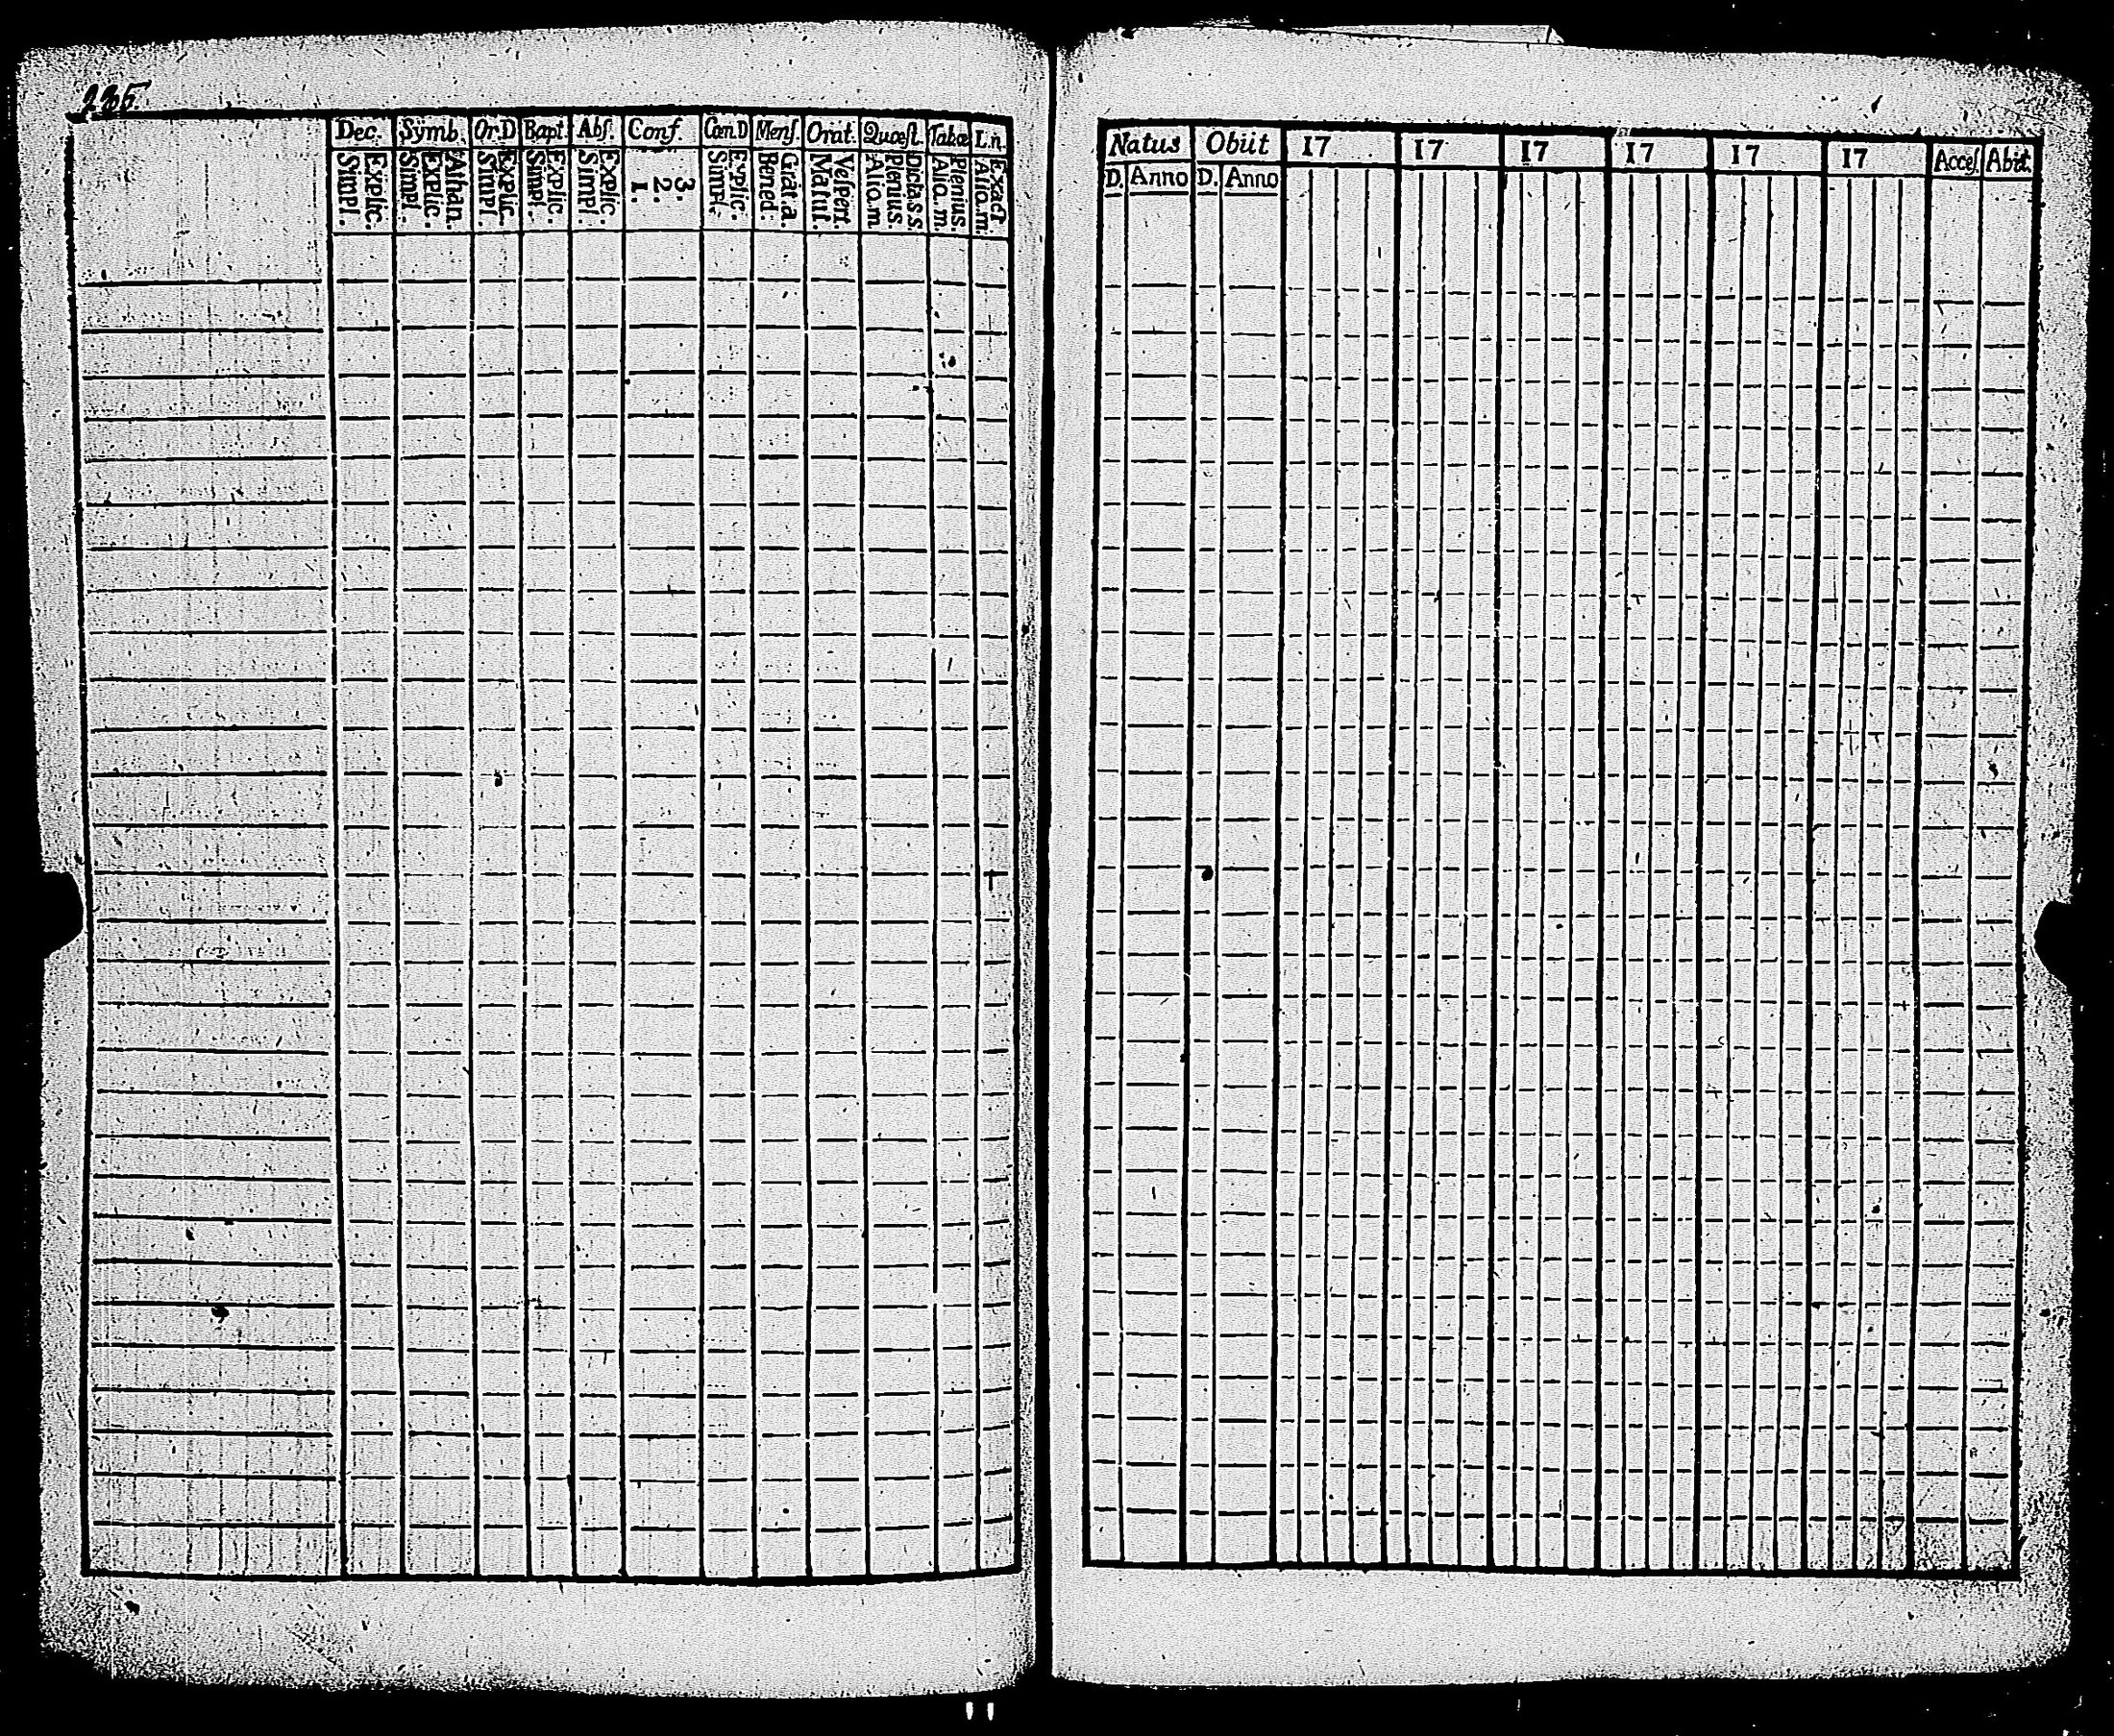 235
Dec. Symb. Or.D Bapt. Abſ. Conf. Cœn.D Menſ. Orat. Quæſt. Tabœ L.n.
Explic. Simpl. Athan. Explic. Simpl. Explic. Simpl. Explic. Simpl. Explic. Simpl. 3. 2. 1. Explic. Simpl. Grat a. Bened. Veſpert. Matut. Dicta.s.s. Plenius. Aliq.m Plenius. Aliq.m. Exact Aliq.m
Natus Obiit 17 17 17 17 17 17 Acceſ. Abit.
D. Anno D. Anno